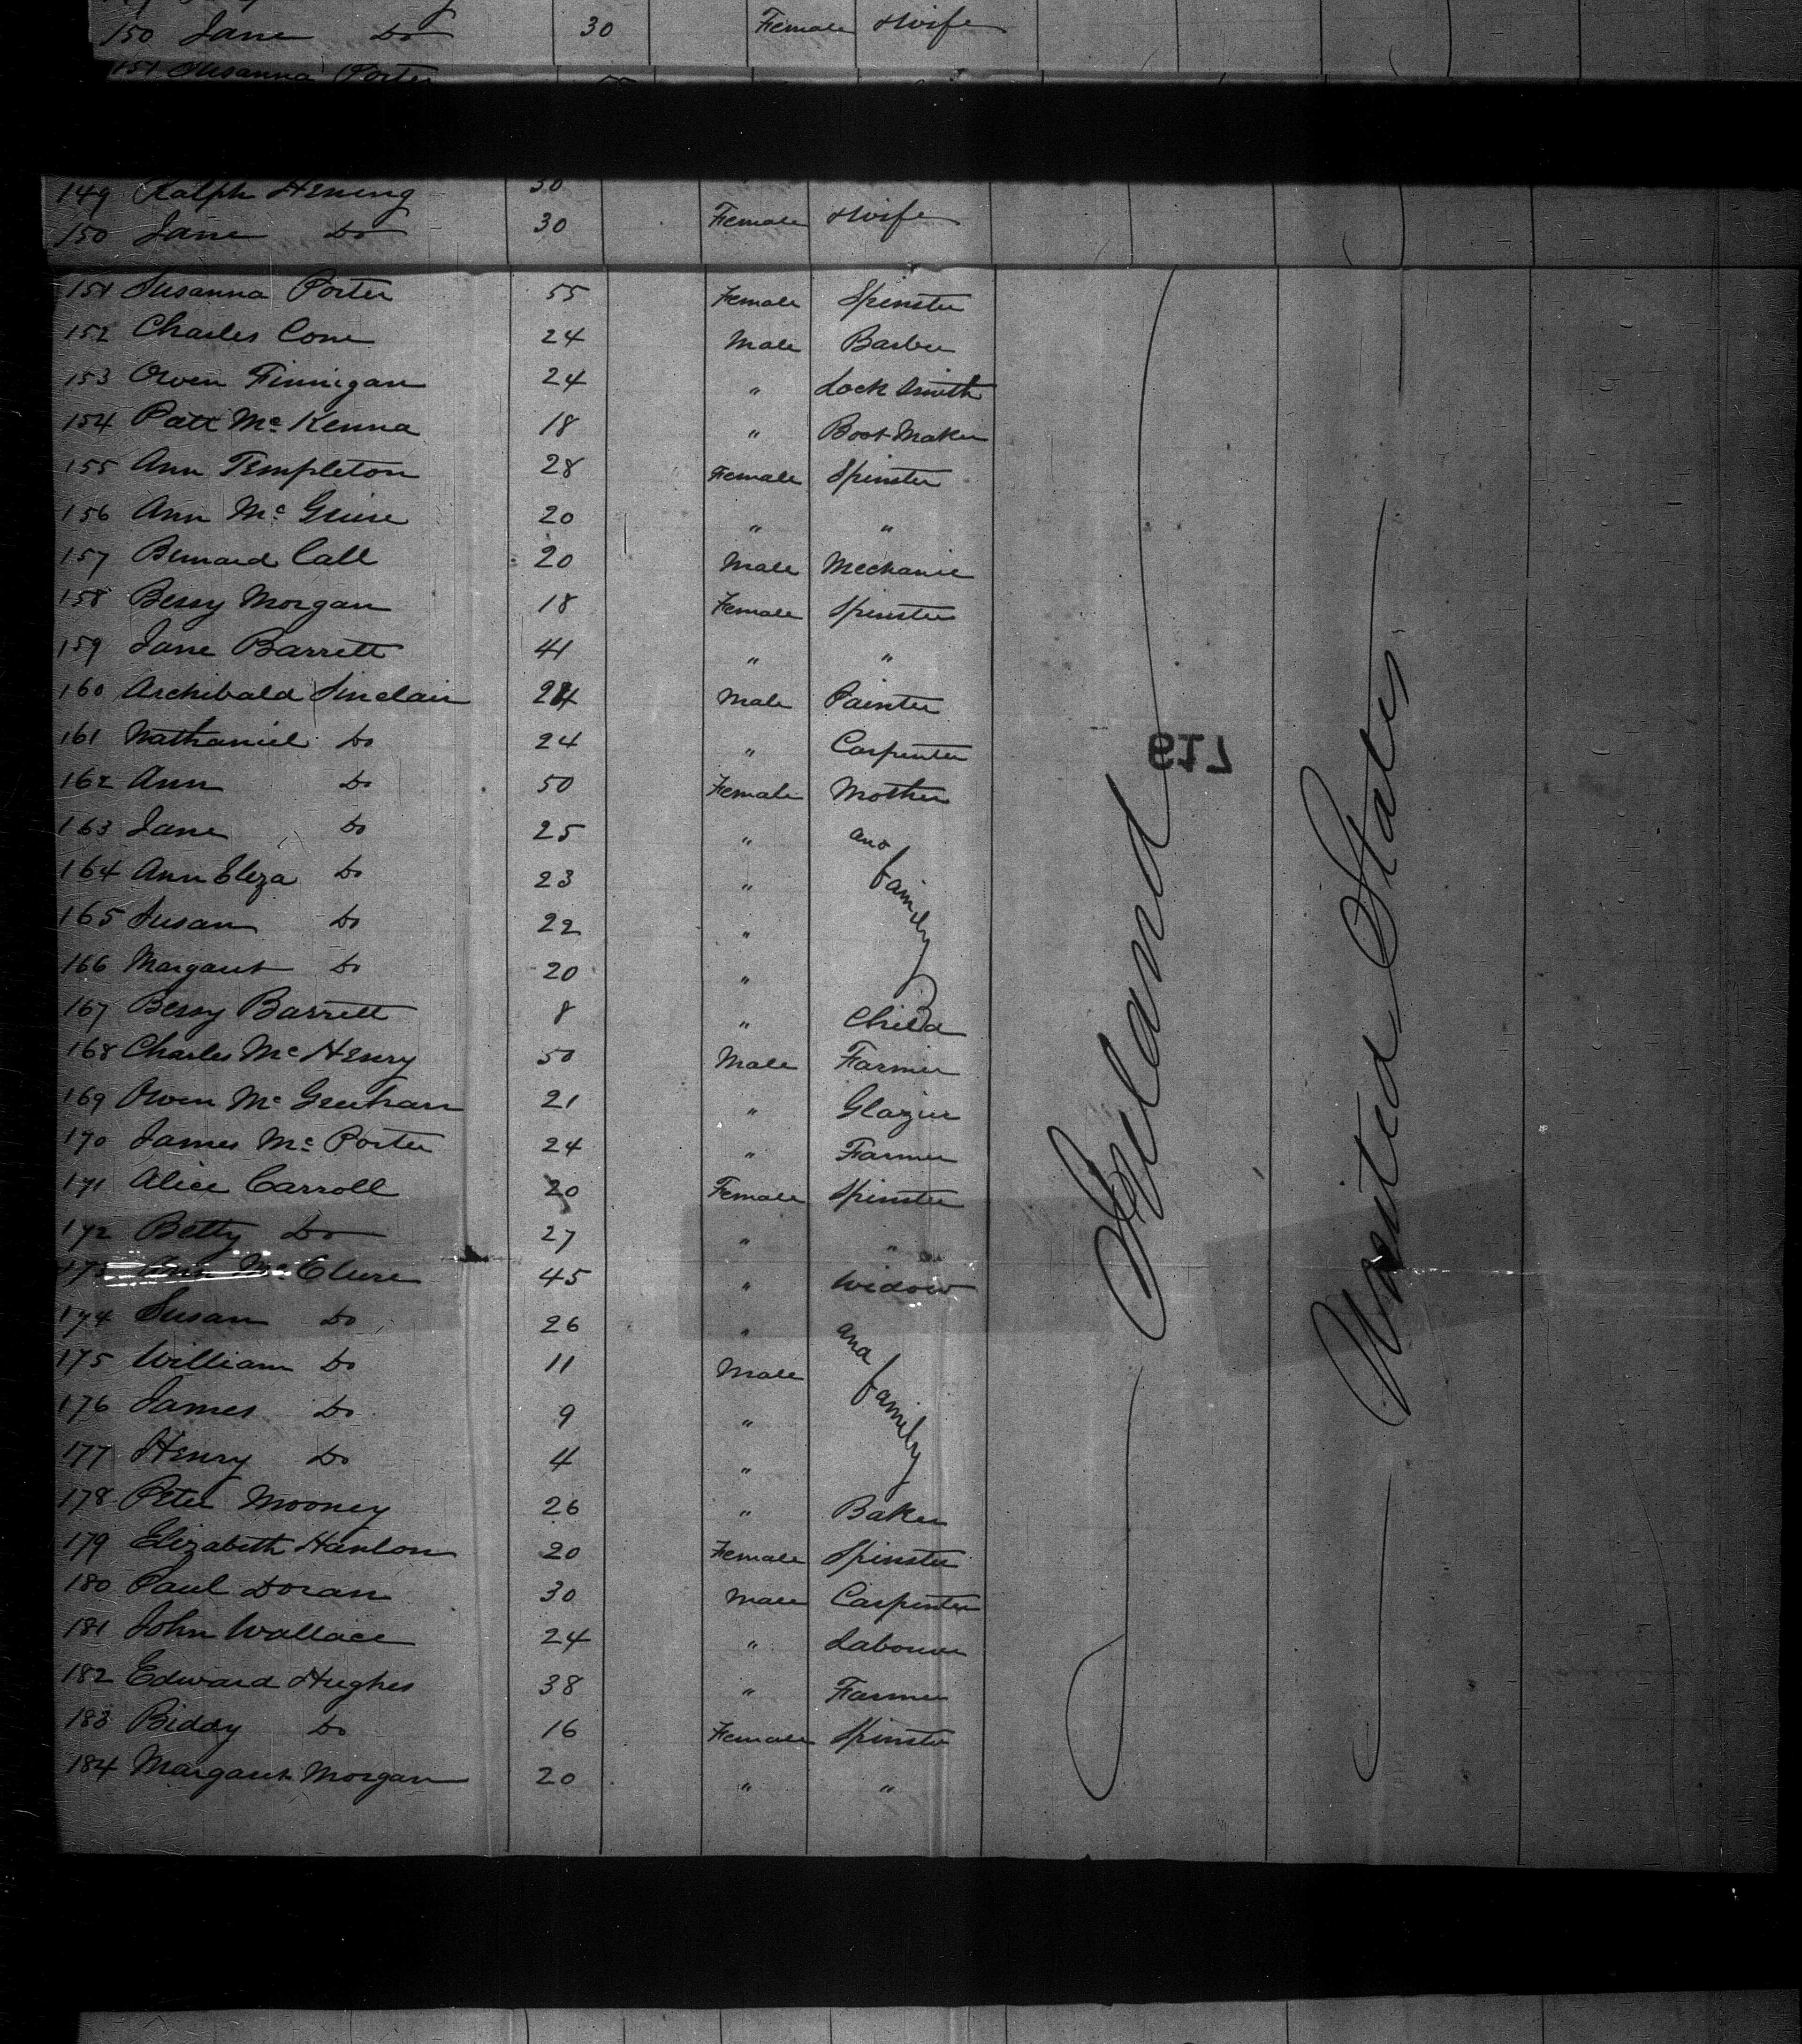 150 Jane Do 30 Female Wife
151 Susanna Porter
149 Ralph Hening 30
150 Jane Do 30 Female Wife
151 Susanna Porter 55 Female Spinster
152 Charles Cone 24 Male Barber
153 Owen Finnigan 24 " Lock Smith
154 Patt Mc Kenna 18 " Boot Maker
155 Ann Templeton 28 Female Spinster
156 Ann Mc 20 " "
157 Bernard Call 20 Male Mechanic
158 Bessy Morgan 18 Female Spinster
159 Jane Barrett 41 " "
160 Archibald Sinclair 24 Male Painter
161 Nathaniel Do 24 " Carpenter
162 Ann Do 50 Female Mother
163 Jane Do 25 " and
164 Ann Eliza Do 23 " family
165 Susan Do 22 "
166 Margaret Do 20 "
167 Bessy Barrett 8 " Child
168 Charles McHenry 50 Male Farmer
169 Owen Mc 21 " Glazier
170 James Mc Porter 24 " Farmer
171 Alice Carroll 20 Female Spinster
172 Betty Do 27 " "
173 Ann McClure 45 " Widow
174 Susan Do 26 " and
175 William Do 11 Male family
176 James Do 9 "
177 Henry Do 4 "
178 Peter Mooney 26 " Baker
179 Elizabeth Hanlon 20 Female Spinster
180 Paul Doran 30 Male Carpenter
181 John Wallace 24 " Labourer
182 Edward Hughes 38 " Farmer
183 Biddy Do 16 Female Spinster
184 Margaret Morgan 20 " "
Ireland
617
United States